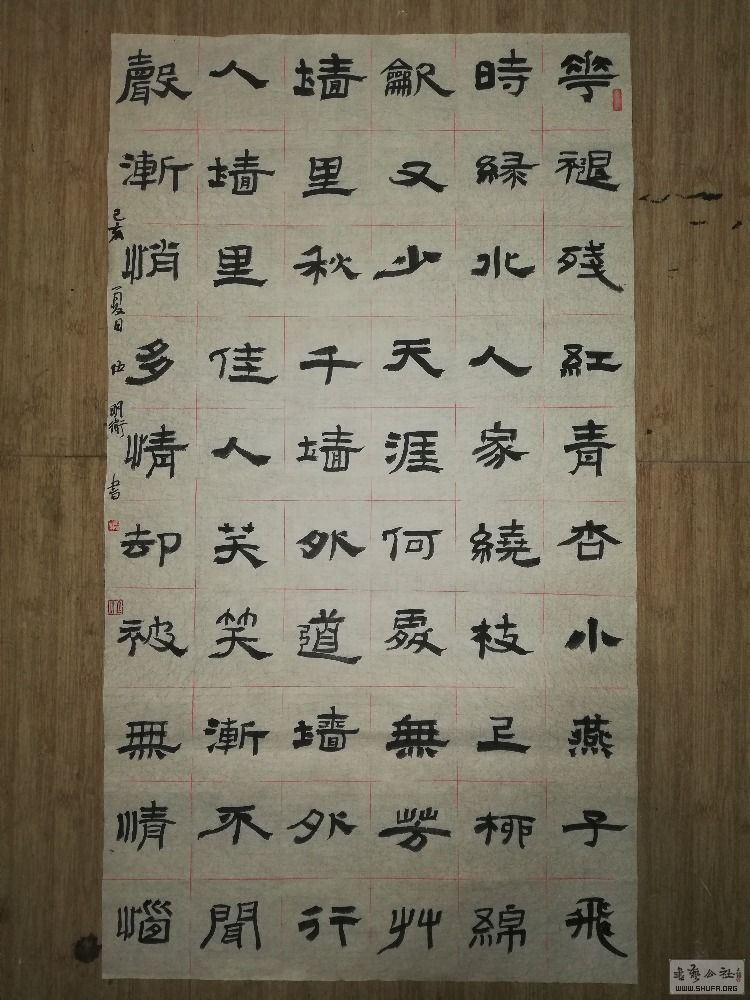 花褪殘紅青杏小燕子飛
時緑水人家繞枝上柳綿
龡又少天涯何處無芳艸
墙里秋千墙外道墙外行
人墙里佳人芙笑漸不聞
聲漸悄多情却被無情惱
己亥夏日伍明衛書
书艺公社
WWW.SHUFA.ORG